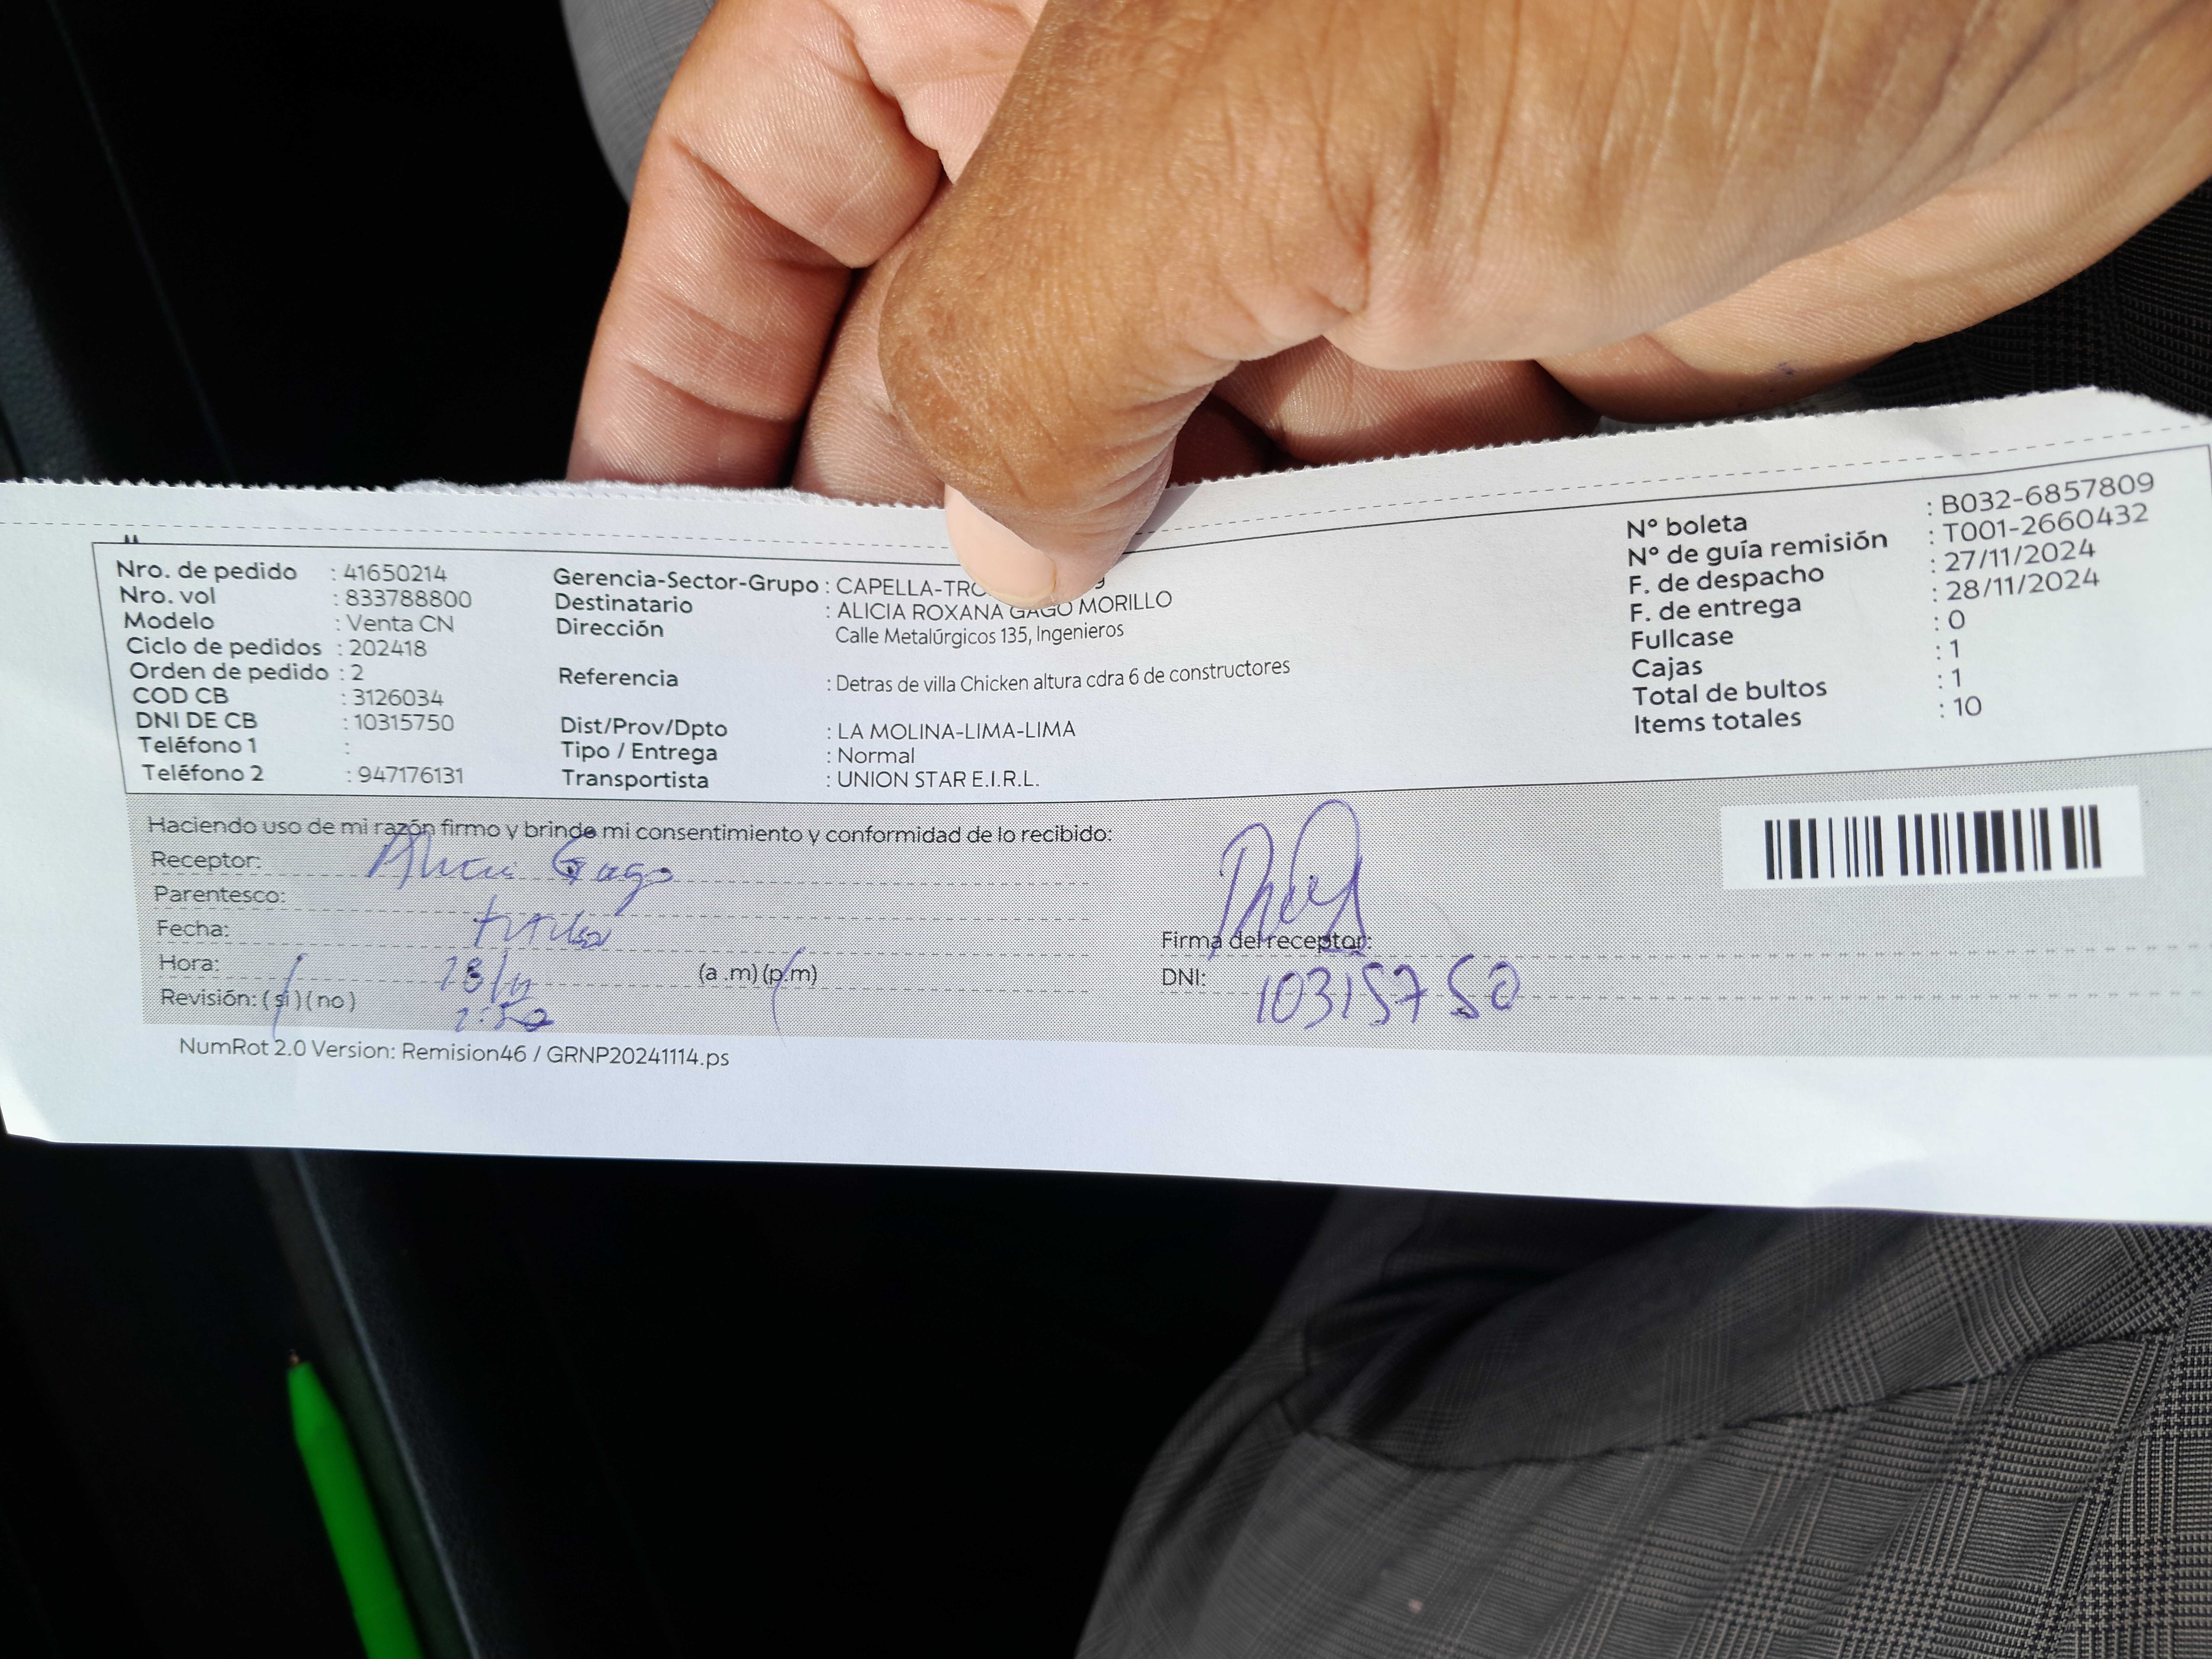 Nro. de pedido : 41650214
Nro. vol : 833788800
Modelo : Venta CN
Ciclo de pedidos : 202418
Orden de pedido : 2
COD CB : 3126034
DNI DE CB : 10315750
Teléfono 1 :
Teléfono 2 : 947176131
Gerencia-Sector-Grupo : CAPELLA-TRO
Destinatario : ALICIA ROXANA GAGO MORILLO
Dirección Calle Metalúrgicos 135, Ingenieros
Referencia : Detras de villa Chicken altura cdra 6 de constructores
Dist/Prov/Dpto : LA MOLINA-LIMA-LIMA
Tipo / Entrega : Normal
Transportista : UNION STAR E.I.R.L.
N° boleta : B032-6857809
N° de guía remisión : T001-2660432
F. de despacho : 27/11/2024
F. de entrega : 28/11/2024
Fullcase : 0
Cajas : 1
Total de bultos : 1
Items totales : 10
Haciendo uso de mi razón firmo y brinde mi consentimiento y conformidad de lo recibido:
Receptor: Alicia Gago
Parentesco:
Fecha: titular
Hora: 28/11 (a .m) (p.m)
Revisión: ( si ) ( no )
Firma del receptor:
DNI: 10315750
NumRot 2.0 Version: Remision46 / GRNP20241114.ps